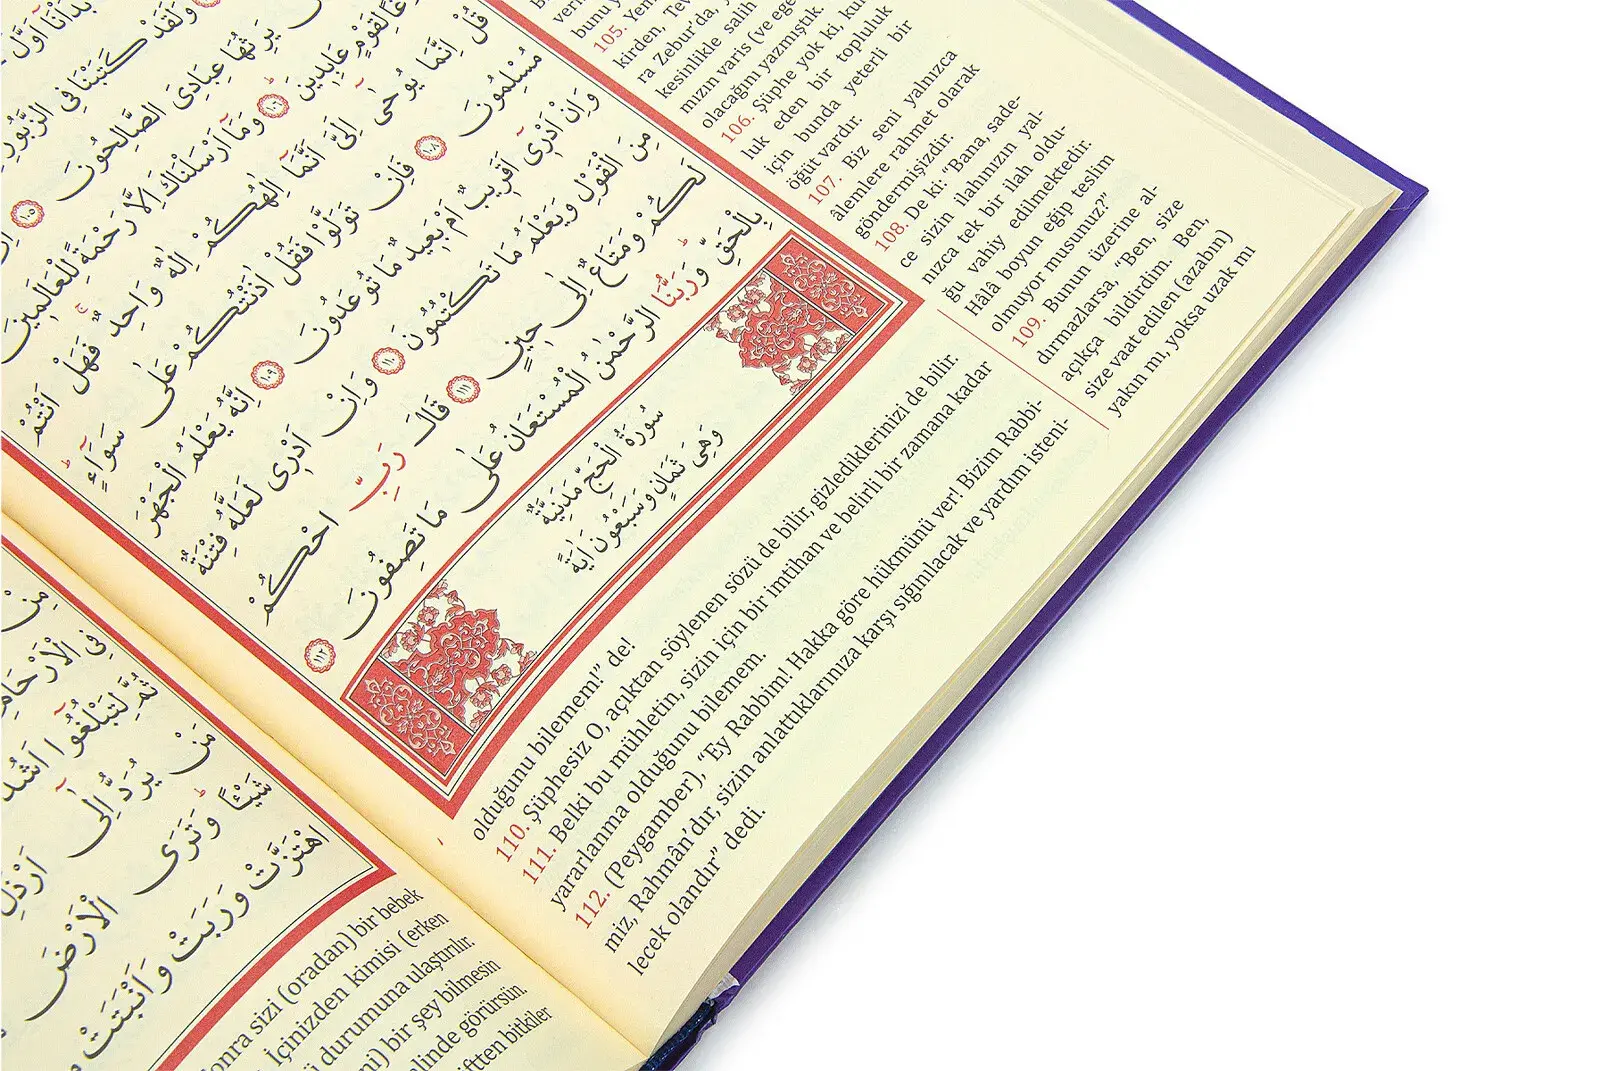 وَلَقَدْ كَتَبْنَا فِى الزَّبُورِ
يَرِثُهَا عِبَادِىَ الصَّالِحُونَ ﴿١٠٥﴾
لِقَوْمٍ عَابِدِينَ ﴿١٠٦﴾ وَمَٓا اَرْسَلْنَاكَ اِلَّا رَحْمَةً لِلْعَالَمِينَ
قُلْ اِنَّمَا يُوحٰٓى اِلَىَّ اَنَّمَٓا اِلٰهُكُمْ اِلٰهٌ وَاحِدٌ فَهَلْ اَنْتُمْ
مُسْلِمُونَ ﴿١٠٨﴾ فَاِنْ تَوَلَّوْا فَقُلْ اٰذَنْتُكُمْ عَلٰى سَوَٓاءٍ
وَاِنْ اَدْرٖٓى اَقَرٖيبٌ اَمْ بَعٖيدٌ مَا تُوعَدُونَ ﴿١٠٩﴾ اِنَّهُ يَعْلَمُ الْجَهْرَ
مِنَ الْقَوْلِ وَيَعْلَمُ مَا تَكْتُمُونَ ﴿١١٠﴾ وَاِنْ اَدْرٖى لَعَلَّهُ فِتْنَةٌ
لَكُمْ وَمَتَاعٌ اِلٰى حٖينٍ ﴿١١١﴾ قَالَ رَبِّ احْكُمْ
بِالْحَقِّ وَرَبُّنَا الرَّحْمٰنُ الْمُسْتَعَانُ عَلٰى مَا تَصِفُونَ ﴿١١٢﴾
سُورَةُ الْحَجِّ مَدَنِيَّةٌ
وَهِىَ ثَمَانٍ وَسَبْعُونَ اٰيَةً
bunu y
105. Yem
kirden, Tev
ra Zebur’da, y
kesinlikle salih
mızın varis (ve ege
olacağını yazmıştık.
106. Şüphe yok ki, kul
luk eden bir topluluk
için bunda yeterli bir
öğüt vardır.
107. Biz seni yalnızca
âlemlere rahmet olarak
göndermişizdir.
108. De ki: “Bana, sade-
ce sizin ilahınızın yal-
nızca tek bir ilah oldu-
ğu vahiy edilmektedir.
Hâlâ boyun eğip teslim
olmuyor musunuz?”
109. Bunun üzerine al-
dırmazlarsa, “Ben, size
açıkça bildirdim. Ben,
size vaat edilen (azabın)
yakın mı, yoksa uzak mı
olduğunu bilemem!” de!
110. Şüphesiz O, açıktan söylenen sözü de bilir, gizlediklerinizi de bilir.
111. Belki bu mühletin, sizin için bir imtihan ve belirli bir zamana kadar
yararlanma olduğunu bilemem.
112. (Peygamber), “Ey Rabbim! Hakka göre hükmünü ver! Bizim Rabbi-
miz, Rahmân’dır, sizin anlattıklarınıza karşı sığınılacak ve yardım isteni-
lecek olandır” dedi.
مِنْ
فِى الْاَرْحَامِ
ثُمَّ لِتَبْلُغُٓوا اَشُدَّ
مَنْ يُرَدُّ اِلٰٓى اَرْذَلِ
شَيْـًٔا وَتَرَى الْاَرْضَ
اهْتَزَّتْ وَرَبَتْ وَاَنْبَتَتْ
onra sizi (oradan) bir bebek
. İçinizden kimisi (erken
durumuna ulaştırılır.
mi) bir şey bilmesin
linde görürsün.
iftten bitkiler